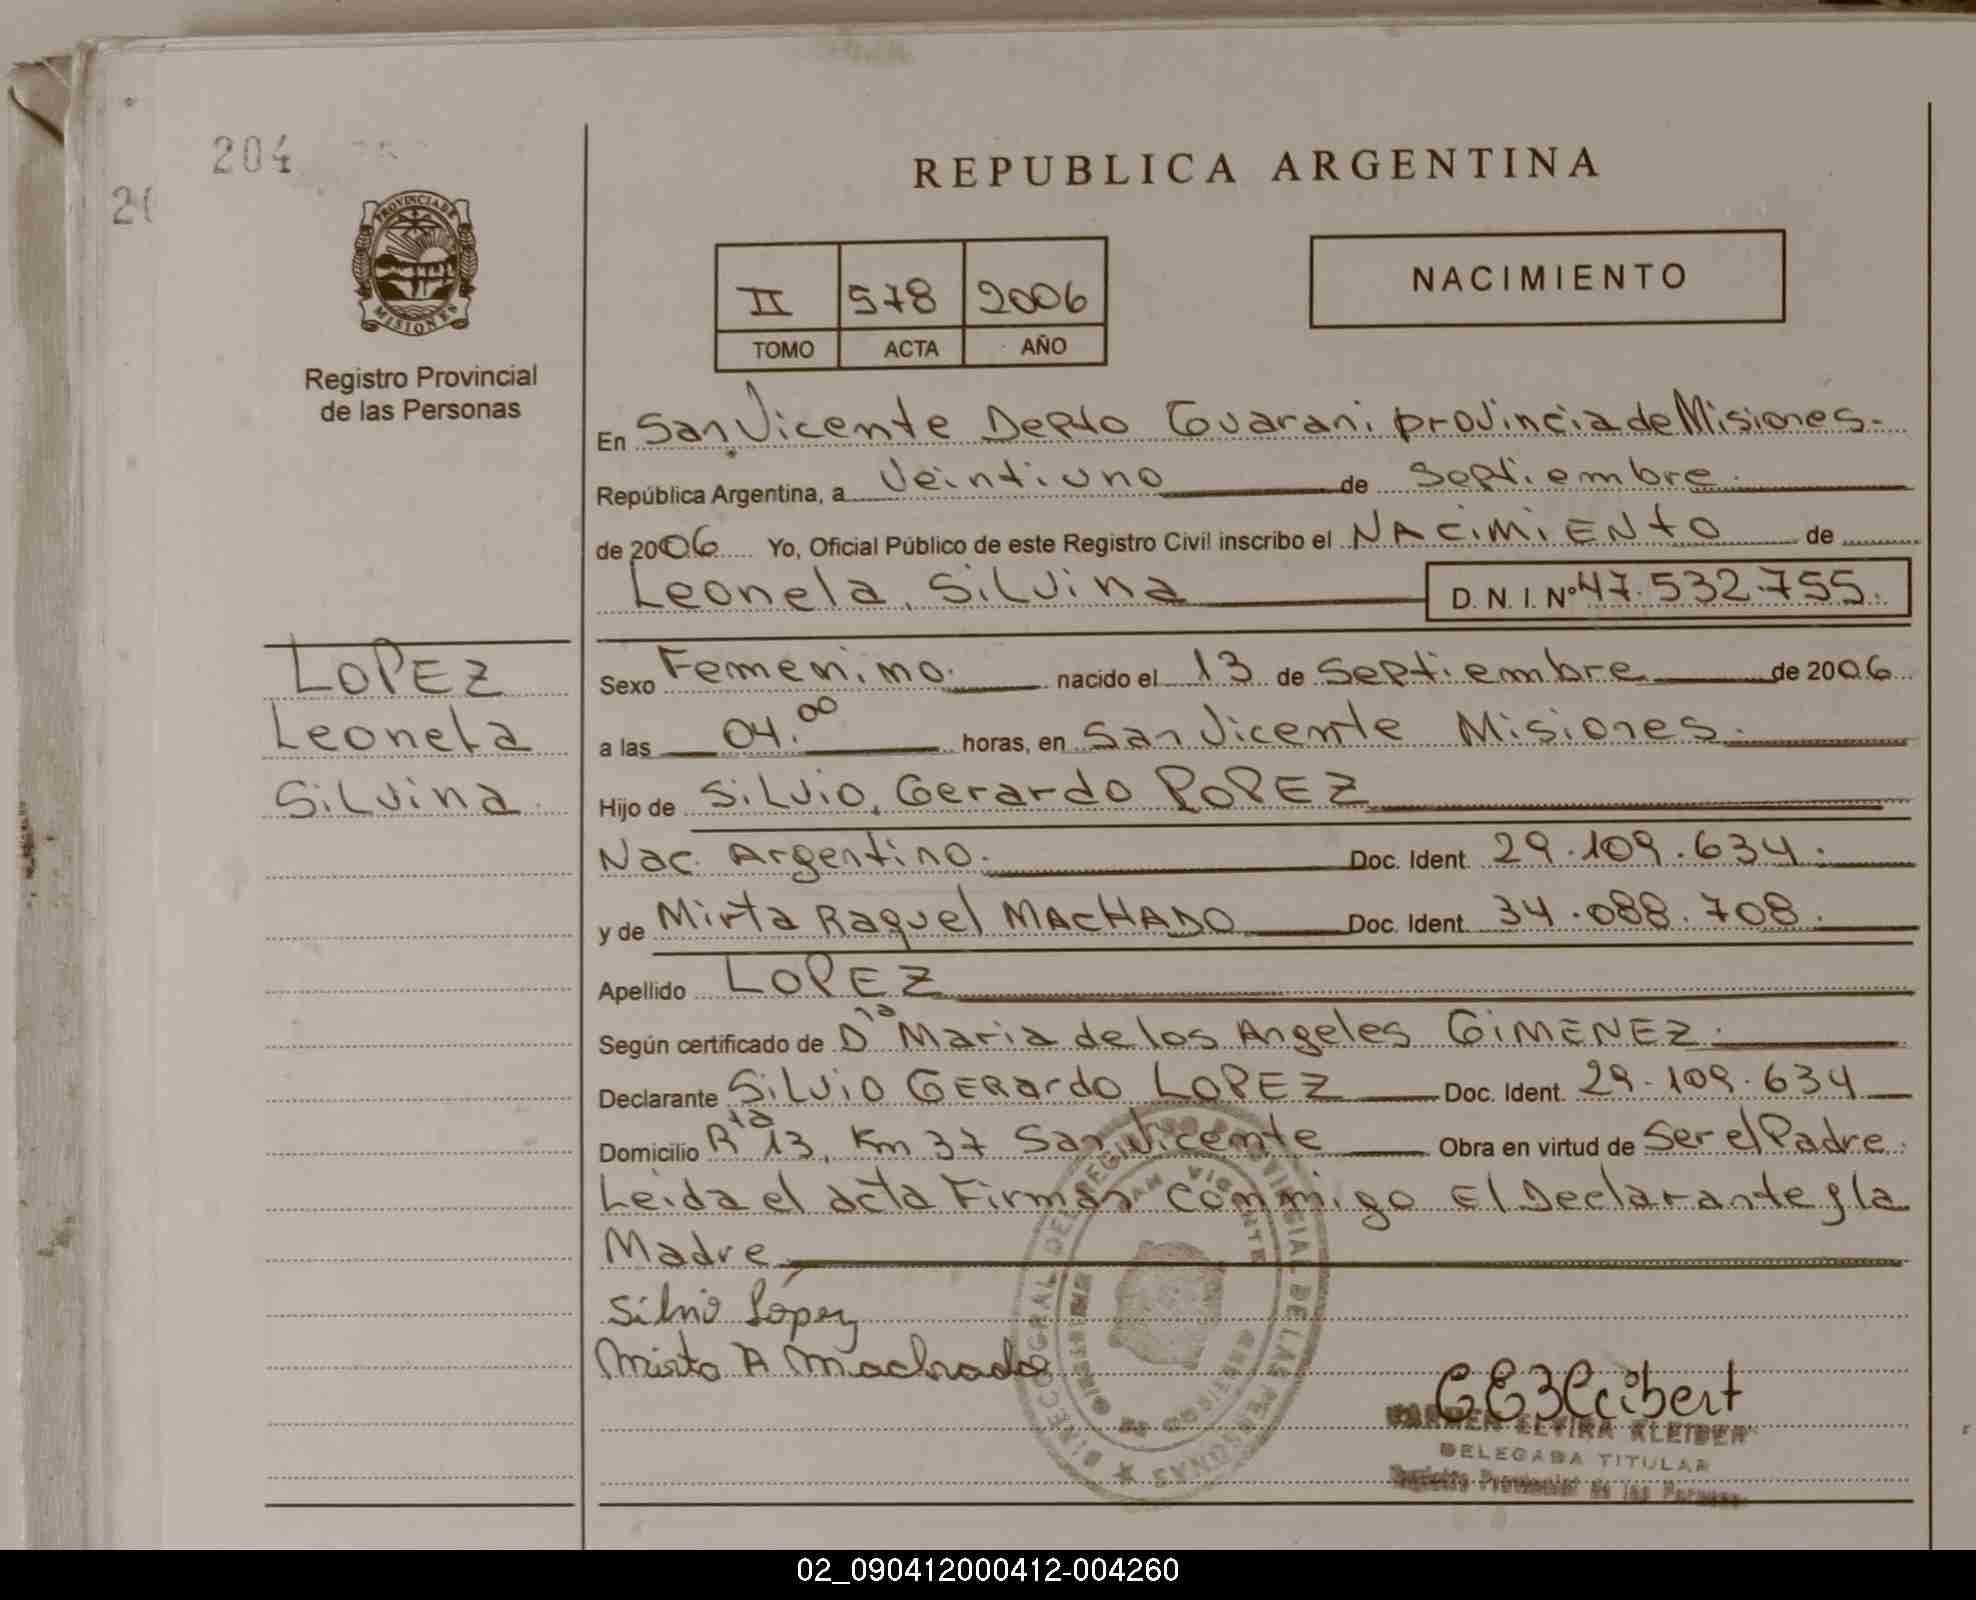 204
REPUBLICA ARGENTINA
PROVINCIA DE
MISIONES
Registro Provincial
de las Personas
II 578 2006
TOMO ACTA AÑO
NACIMIENTO
En San Vicente Depto Guarani provincia de Misiones.
República Argentina, a Veintiuno de Septiembre.
de 2006 Yo, Oficial Público de este Registro Civil inscribo el NACIMIENTO de
Leonela, Silvina D. N. I. Nº 47.532.755.
LOPEZ
Leonela
Silvina.
Sexo Femenino. nacido el 13 de Septiembre de 2006
a las 04.00 horas, en San Vicente Misiones.
Hijo de Silvio, Gerardo LOPEZ
Nac. Argentino. Doc. Ident. 29.109.634.
y de Mirta Raquel MACHADO Doc. Ident. 34.088.708.
Apellido LOPEZ
Según certificado de Dña Maria de los Angeles GIMENEZ.
Declarante Silvio GERardo LOPEZ Doc. Ident. 29.109.634
Domicilio Rta 13, Km 37 San Vicente Obra en virtud de Ser el Padre.
Leida el acta Firman conmigo El Declarante y la
Madre
Silvio López
Mirta R Machado
CARMEN ELVIRA KLEIBER
DELEGADA TITULAR
Registro Provincial de las Personas
DIRECC GRAL DEL REGISTRO PROVINCIAL DE LAS PERSONAS
02_090412000412-004260